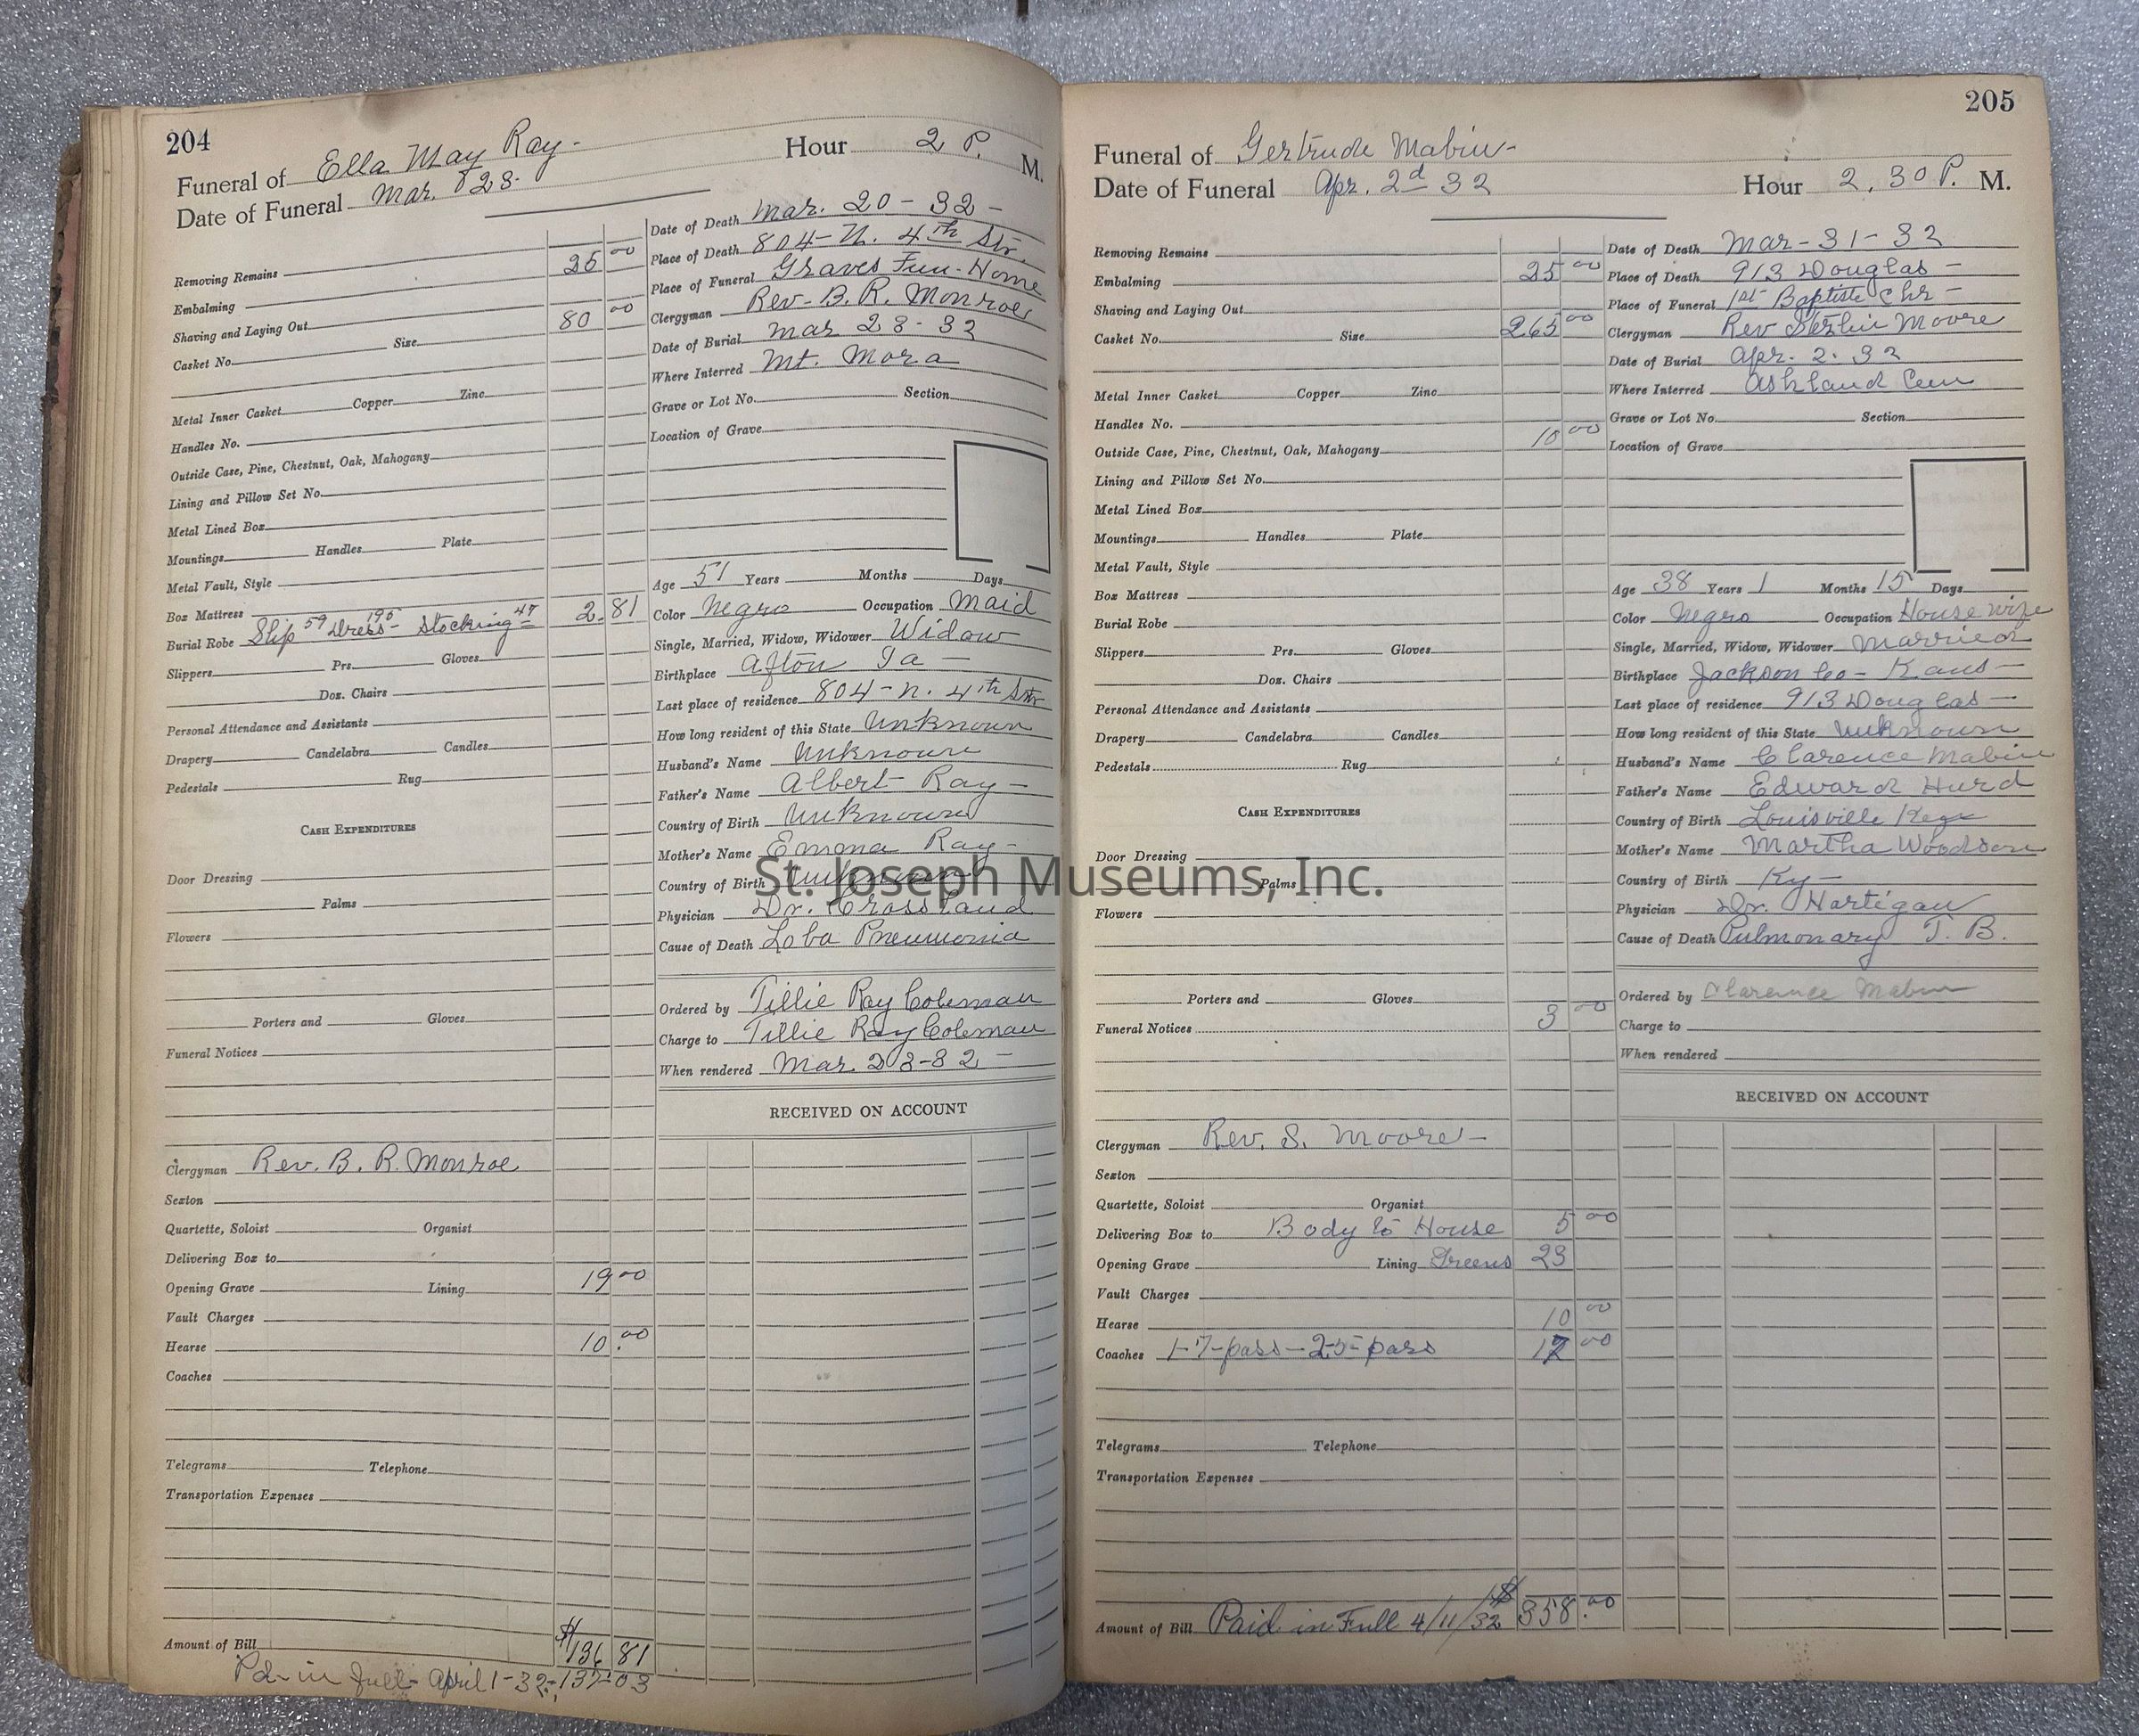 204
Funeral of Ella May Ray-
Hour 2 P. M.
Date of Funeral Mar. 28-
Removing Remains
Embalming 25 00
Shaving and Laying Out
Casket No. Size 80 00
Metal Inner Casket Copper Zinc
Handles No.
Outside Case, Pine, Chestnut, Oak, Mahogany
Lining and Pillow Set No.
Metal Lined Box
Mountings Handles Plate
Metal Vault, Style
Box Mattress
Burial Robe Slip 59 Dress- 195 Stocking 47 2.81
Slippers Prs. Gloves
Doz. Chairs
Personal Attendance and Assistants
Drapery Candelabra Candles
Pedestals Rug
CASH EXPENDITURES
Door Dressing
Palms
Flowers
Porters and Gloves
Funeral Notices
Clergyman Rev. B. R. Monroe
Sexton
Quartette, Soloist Organist
Delivering Box to
Opening Grave Lining 19 00
Vault Charges
Hearse 10.00
Coaches
Telegrams Telephone
Transportation Expenses
Amount of Bill $136 81
Pd- in full- April 1-32-137-03
Date of Death Mar. 20-32-
Place of Death 804-N. 4th Str.
Place of Funeral Graves Fun-Home
Clergyman Rev-B. R. Monroe
Date of Burial Mar 28-32
Where Interred Mt. Mora
Grave or Lot No. Section
Location of Grave
Age 51 Years Months Days
Color Negro Occupation Maid
Single, Married, Widow, Widower Widow
Birthplace Afton Ia-
Last place of residence 804-N. 4th Str
How long resident of this State Unknown
Husband's Name Unknown
Father's Name Albert Ray-
Country of Birth Unknown
Mother's Name Emma Ray-
Country of Birth Unknown
Physician Dr. Crossland
Cause of Death Loba Pneumonia
Ordered by Tillie Ray Coleman
Charge to Tillie Ray Coleman
When rendered Mar. 23-32-
RECEIVED ON ACCOUNT
St. Joseph Museums, Inc.
205
Funeral of Gertrude Mabin-
Date of Funeral Apr. 2d 32
Hour 2.30 P. M.
Removing Remains
Embalming 25 00
Shaving and Laying Out
Casket No. Size 265 00
Metal Inner Casket Copper Zinc
Handles No.
Outside Case, Pine, Chestnut, Oak, Mahogany 10 00
Lining and Pillow Set No.
Metal Lined Box
Mountings Handles Plate
Metal Vault, Style
Box Mattress
Burial Robe
Slippers Prs. Gloves
Doz. Chairs
Personal Attendance and Assistants
Drapery Candelabra Candles
Pedestals Rug
CASH EXPENDITURES
Door Dressing
Palms
Flowers
Porters and Gloves
Funeral Notices 3 00
Clergyman Rev. S. Moore-
Sexton
Quartette, Soloist Organist
Delivering Box to Body to House 5 00
Opening Grave Lining Greens 23
Vault Charges
Hearse 10 00
Coaches 1-7-pass-2-5-pass 17 00
Telegrams Telephone
Transportation Expenses
Amount of Bill Paid in Full 4/11/32 $358.00
Date of Death Mar-31-32
Place of Death 913 Douglas-
Place of Funeral 1st Baptist Chr-
Clergyman Rev Moore
Date of Burial Apr. 2. 32
Where Interred Ashland Cem
Grave or Lot No. Section
Location of Grave
Age 38 Years 1 Months 15 Days
Color Negro Occupation House wife
Single, Married, Widow, Widower Married
Birthplace Jackson Co- Kans-
Last place of residence 913 Douglas-
How long resident of this State Unknown
Husband's Name Clarence Mabin
Father's Name Edward Hurd
Country of Birth Louisville
Mother's Name Martha Woodson
Country of Birth Ky-
Physician Dr. Hartigan
Cause of Death Pulmonary T. B.
Ordered by Clarence Mabin
Charge to
When rendered
RECEIVED ON ACCOUNT